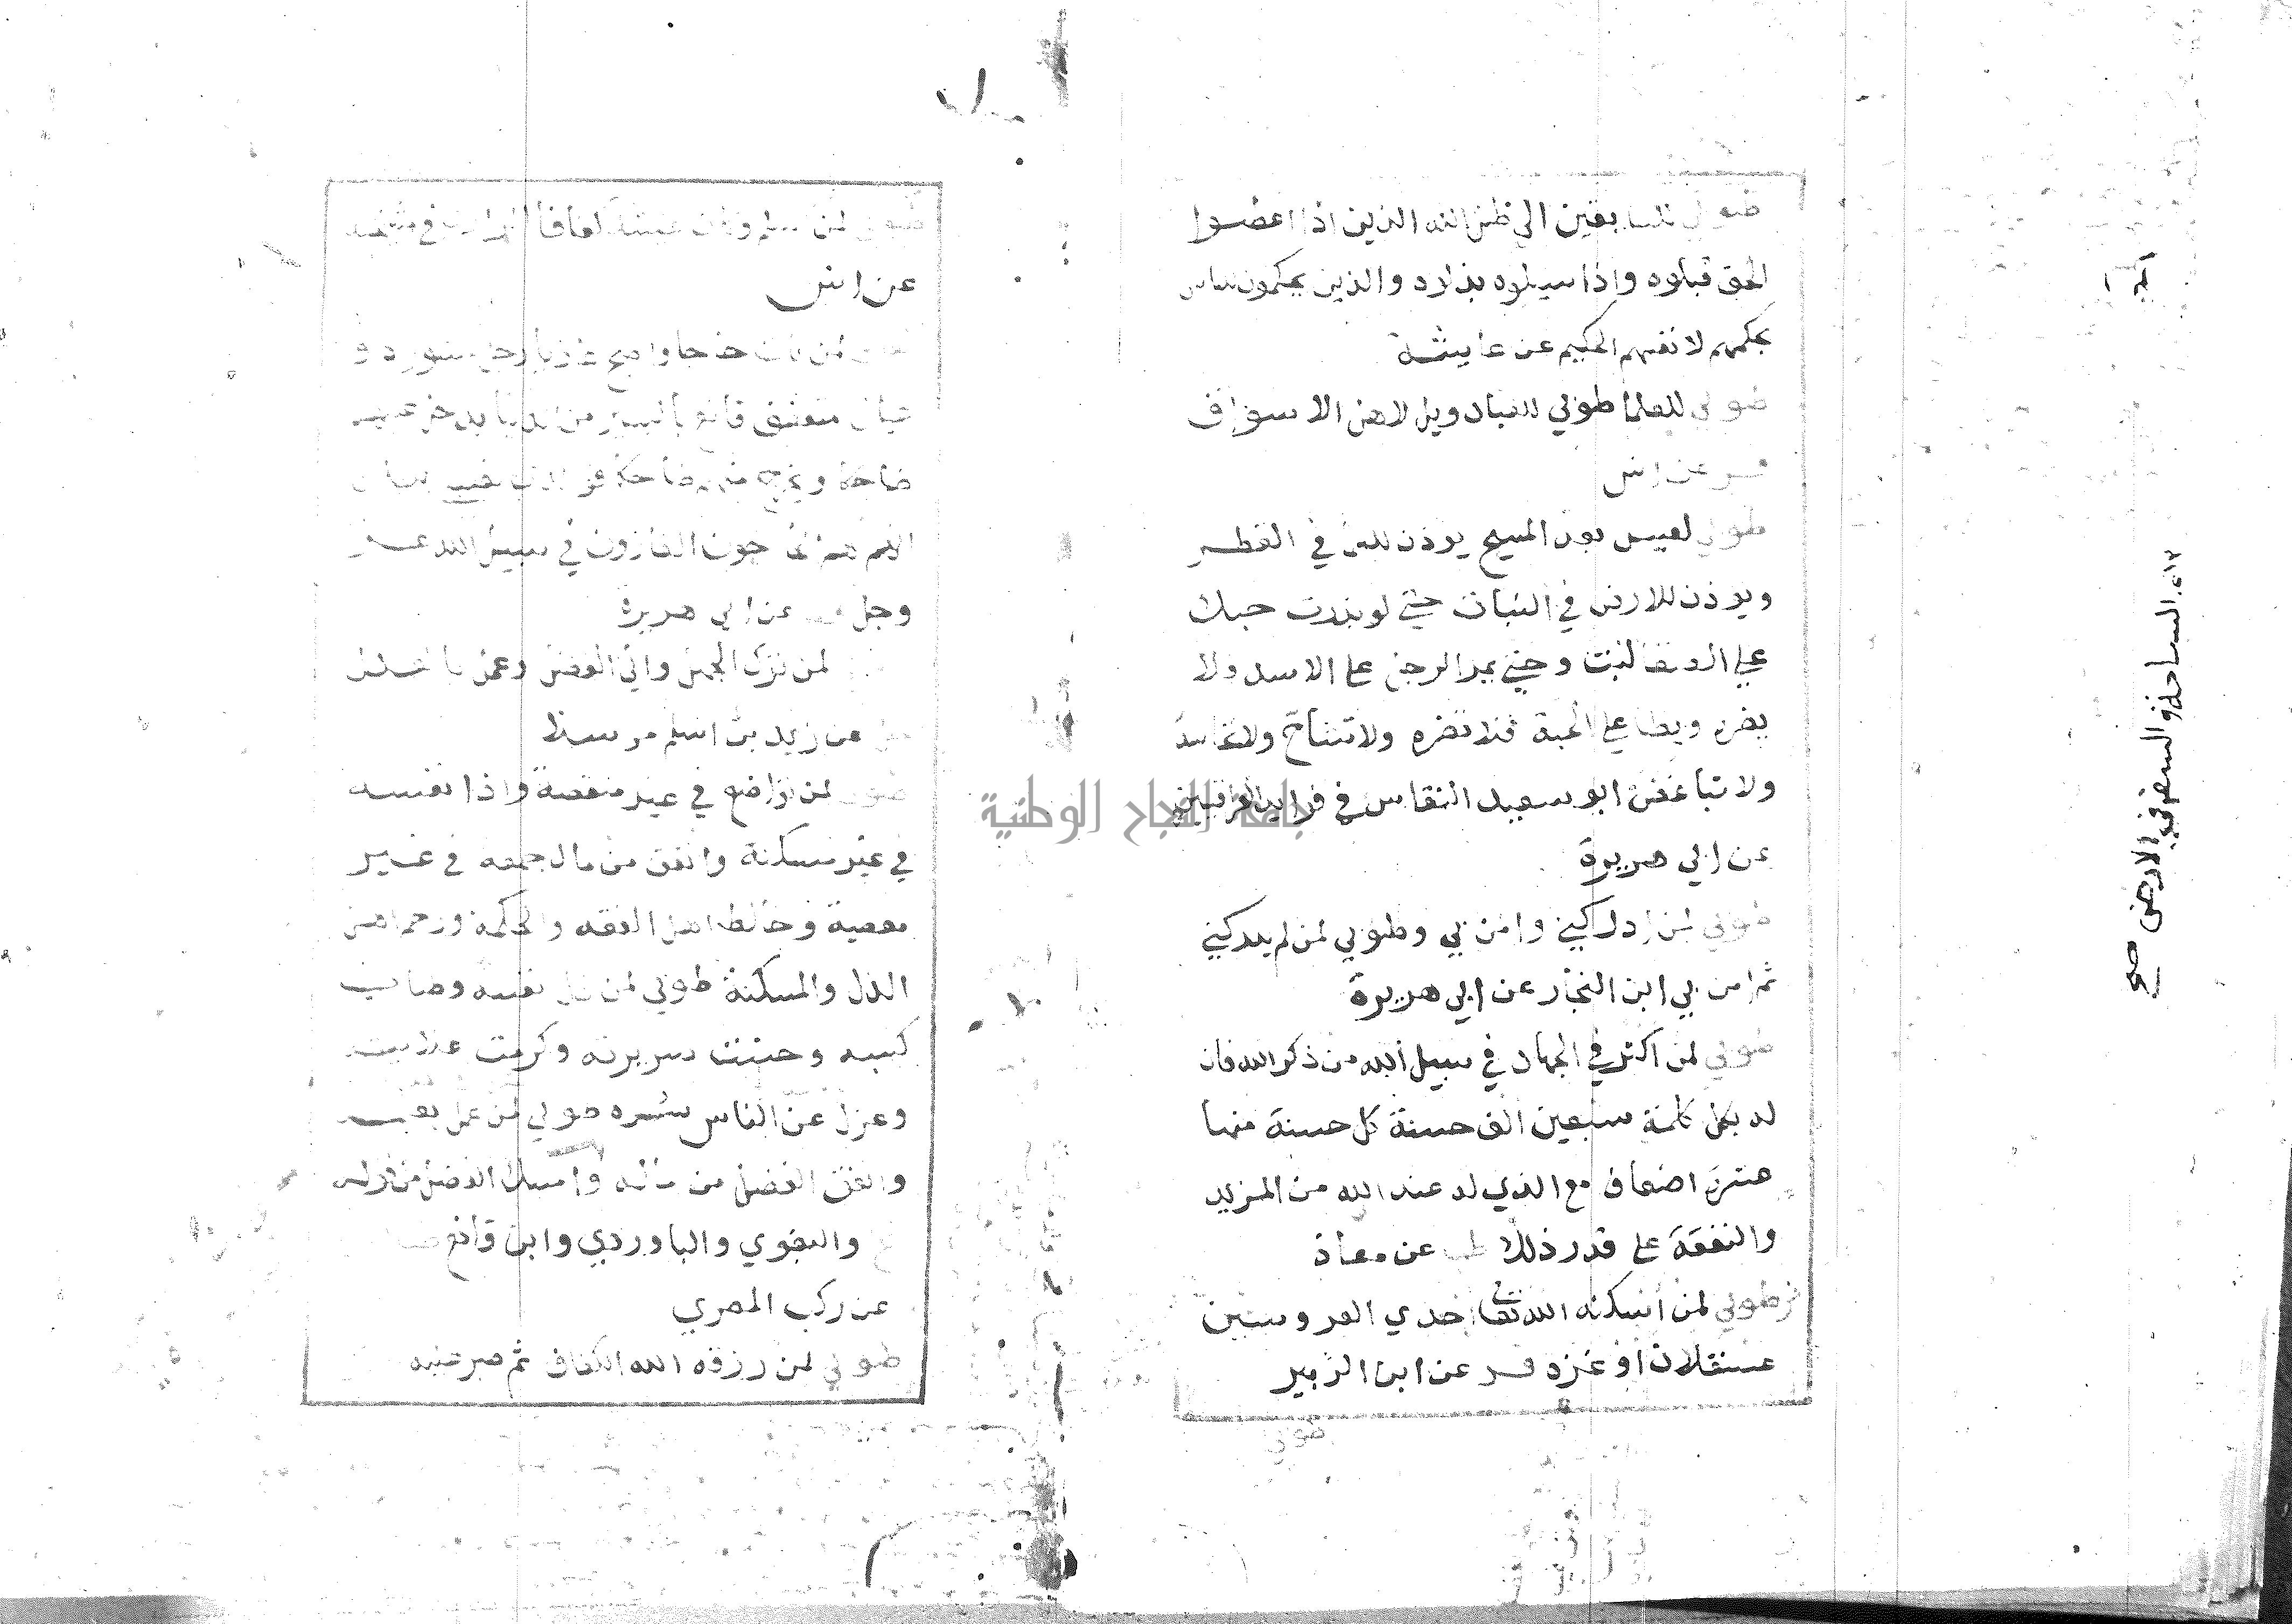 طوبي للسابقين الي ظل الله الذين اذا اعضوا
الحق قبلوه واذا سيلوه بذلوه والذين يحكمون للناس
بحكمهم لانفسهم الحكيم عن عايشة
طوبي للعلما طوبي للعباد ويل لاهل الاسواق
فر عن انس
طوبي لعيس بعد المسيح يوذن للسما في القطر
ويوذن للارض في النبات حتي لو بذرت حبك
علي الصفا لنبت وحتي يمر الرجل علي الاسد ولا
يضره ويطا علي الحية فلا تضره ولا تشاح ولا تحاسد
ولا تباغض ابو سعيد النقاس في فوايد العراقيين
عن ابي هريرة
طوبي لمن ادركني وامن بي وطوبي لمن لم يدركني
ثم امن بي ابن النجار عن ابي هريرة
طوبي لمن اكثر في الجهاد في سبيل الله من ذكر الله فان
له بكل كلمة سبعين الف حسنة كل حسنة منها
عشرة اضعاف مع الذي له عند الله من المزيد
والنفقة علي قدر ذلك طب عن معاذ
طوبي لمن اسكنه الله تعا احدي العروسين
عسقلان او غزه فر عن ابن الزبير
طوبي
جامعة النجاح الوطنية
السياحة والسفر في الارض صح
طوبي لمن
عن انس
لمن بات حاجا واصبح غازيا رجل مستور ذو
عيال متعفف قانع باليسير من الدنيا يدخل عليهم
ضاحكا ويخرج منهم ضاحكا فوالذي نفسي بيده
انهم هم الحاجون الغازون في سبيل الله عز
وجل عن ابي هريرة
لمن ترك الجهل واتي الفضل وعمل بالعدل
عن زيد بن اسلم مرسلا
طوبي لمن تواضع في غير منقصة واذل نفسه
في غير مسكنة وانفق من مال جمعه في غير
معصية وخالط اهل الفقه والحكمة ورحم اهل
الذل والمسكنة طوبي لمن ذل نفسه وطاب
كسبه وحسنت سريرته وكرمت علانيته
وعزل عن الناس شره طوبي لمن عمل بعلمه
وانفق الفضل من ماله وامسك الفضل من قوله
والبغوي والباوردي وابن قانع
عن ركب المصري
طوبي لمن رزقه الله الكفاف ثم صبر عليه